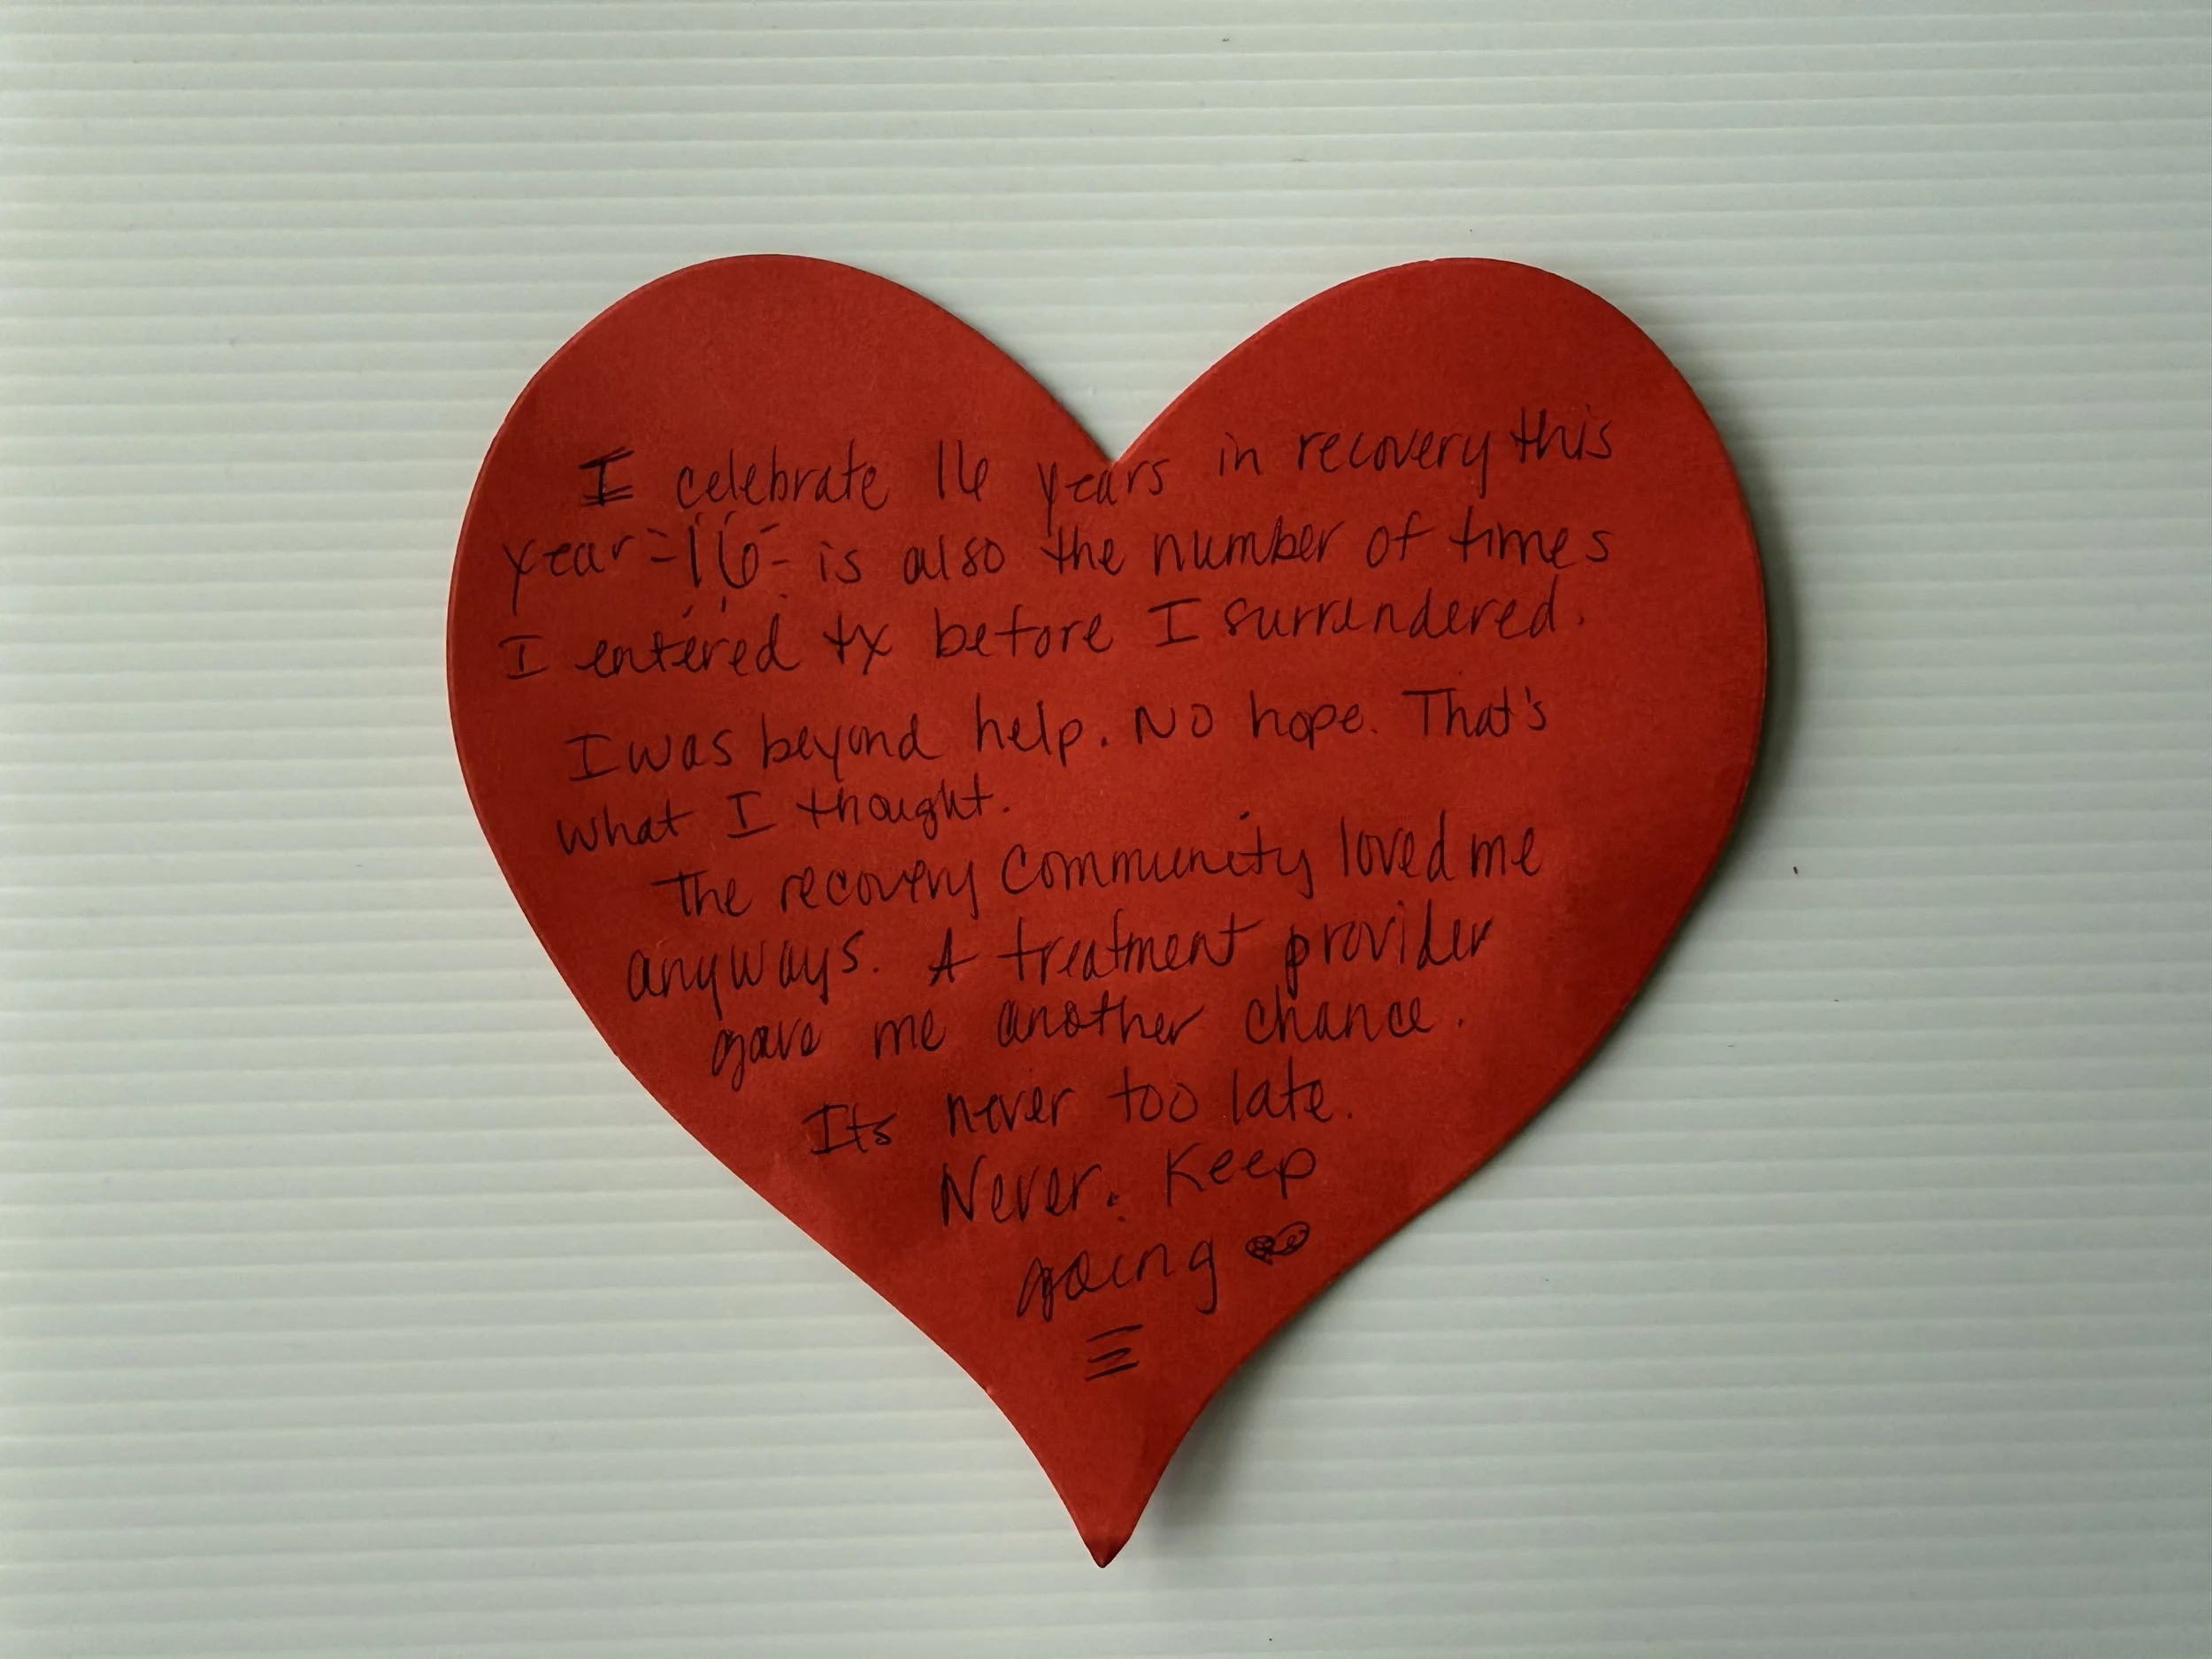 I celebrate 16 years in recovery this
year - 16 - is also the number of times
I entered tx before I surrendered.
I was beyond help. No hope. That's
what I thought.
The recovery community loved me
anyways. A treatment provider
gave me another chance.
Its never too late.
Never. Keep
going